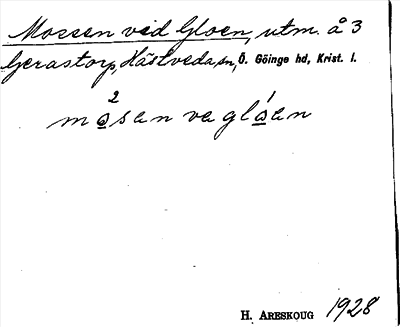 Mossen vid Gloen, utm. å 3
Gerastorp, Hästveda sn, Ö. Göinge hd, Krist. l.
2
mo̲sen va gló̲en
H. ARESKOUG 1928